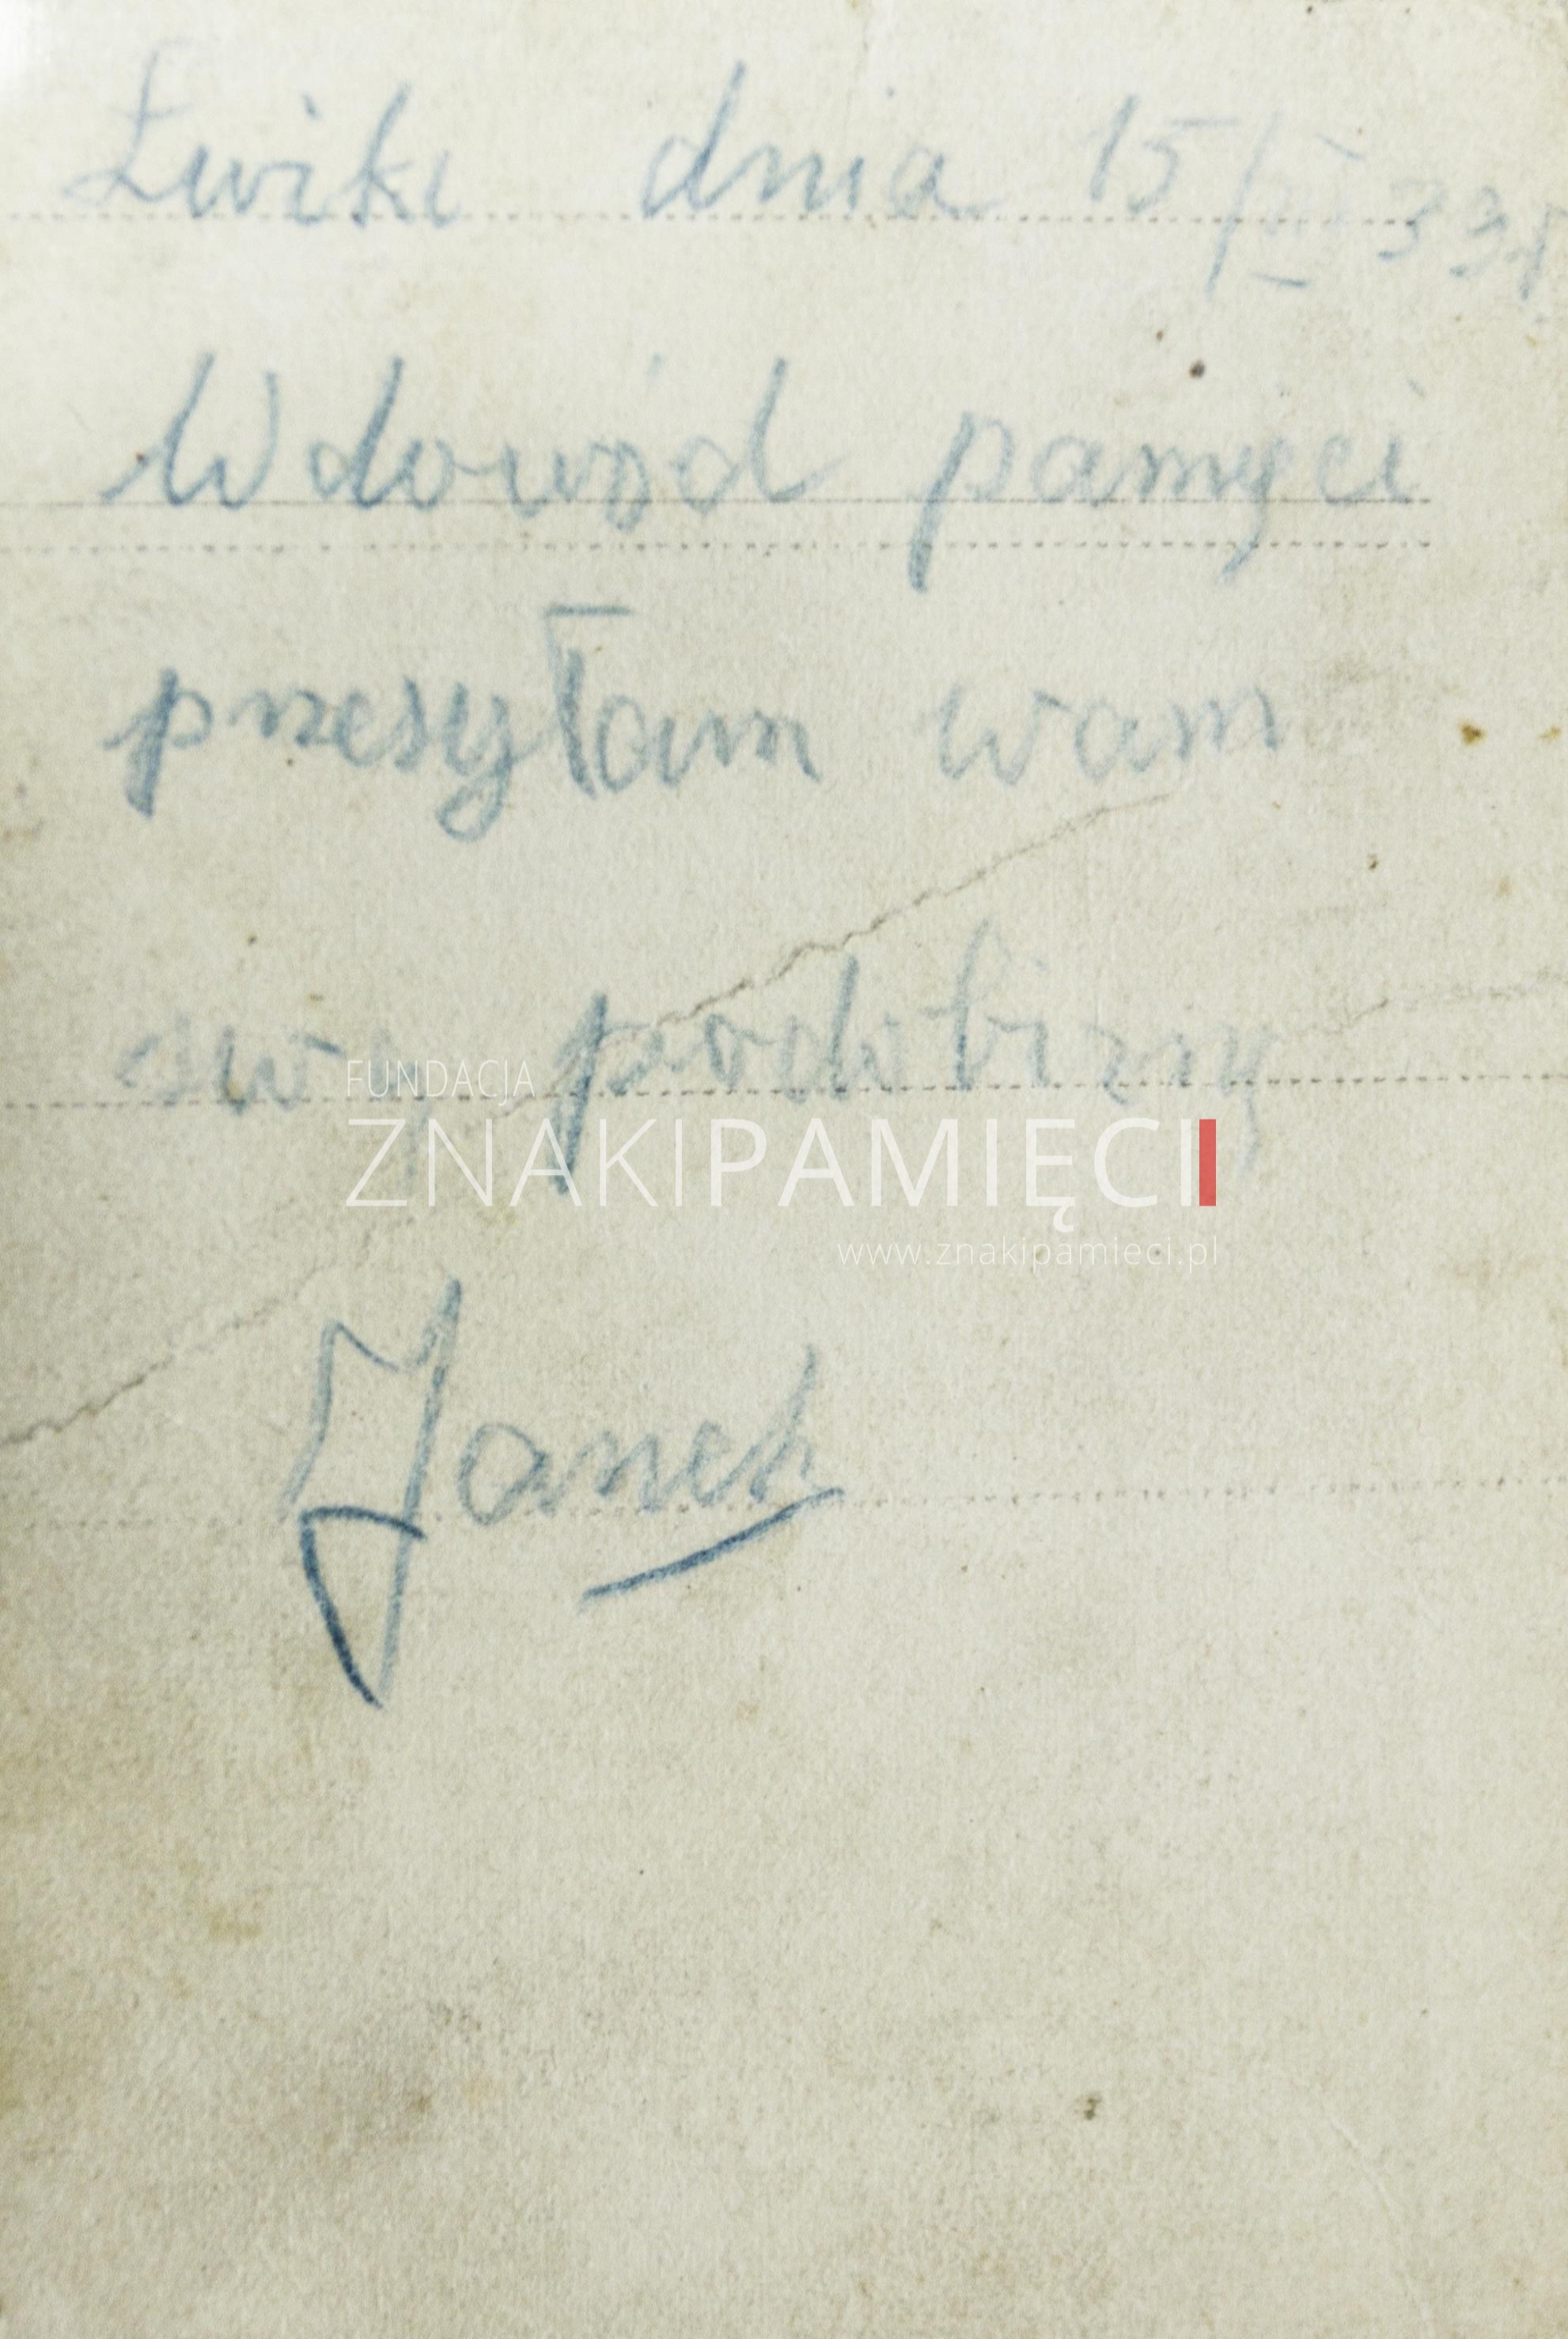 Żwiki dnia 15/III 33r
W dowód pamięci
przesyłam wam
swą podobizną
FUNDACJA
ZNAKIPAMIĘCI
www.znakipamieci.pl
Janek